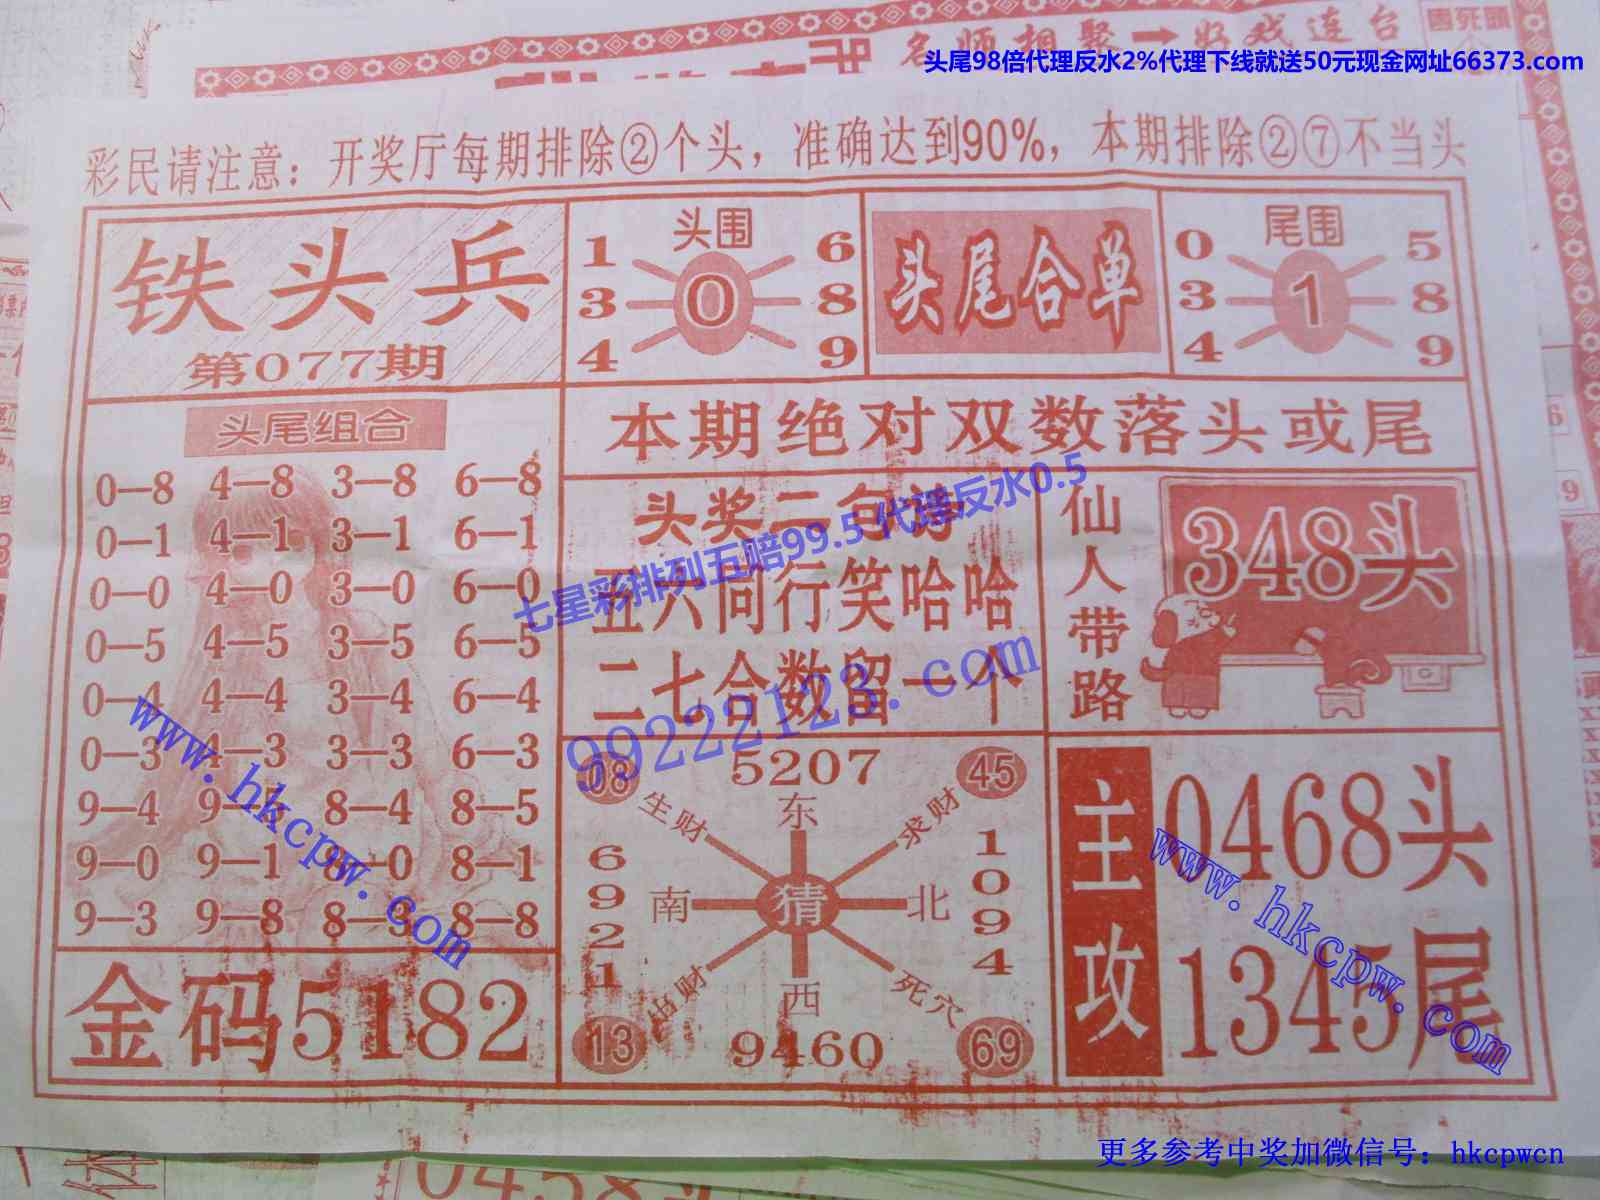 名师相聚一好戏连台
头尾98倍代理反水2%代理下线就送50元现金网址66373.com
彩民请注意：开奖厅每期排除②个头，准确达到90%，本期排除②⑦不当头
铁头兵
第077期
头围
1 6
3 0 8
4 9
头尾合单
尾围
0 5
3 1 8
4 9
头尾组合
0—8 4—8 3—8 6—8
0—1 4—1 3—1 6—1
0—0 4—0 3—0 6—0
0—5 4—5 3—5 6—5
0—4 4—4 3—4 6—4
0—3 4—3 3—3 6—3
9—4 9— 8—4 8—5
9—0 9—1 8—0 8—1
9—3 9—8 8—3 8—8
金码5182
本期绝对双数落头或尾
头奖二句诗
五六同行笑哈哈
二七合数留一个
仙人带路
348头
七星彩排列五赔99.5 代理反水0.5
99222123.com
08 5207 45
生财 东 求财
6921 南 猜 北 1094
出财 西 死穴
13 9460 69
主攻
0468头
1345尾
www.hkcpw.com
www.hkcpw.com
更多参考中奖加微信号：hkcpwcn